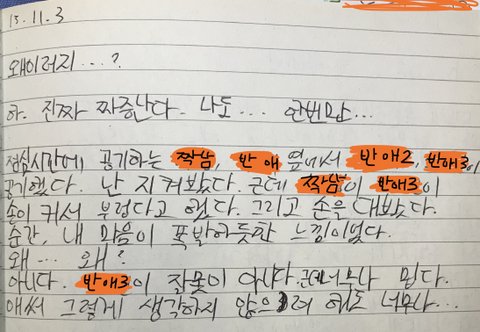 15.11.3
왜이러지...?
하. 진짜 짜증난다. 나도... 한번만...
점심시간에 공기하는 짝남, 반 애 옆에서 반애2, 반애3이
공기했다. 난 지켜봤다. 근데 짝남이 반애3이
손이 커서 부럽다고 했다. 그리고 손을 대봤다.
순간, 내 마음이 폭발하듯한 느낌이었다.
왜... 왜?
아니다. 반애3이 잘못이 아니다. 근데너무나 밉다.
애써 그렇게 생각하지 않으려 해도 너무나...